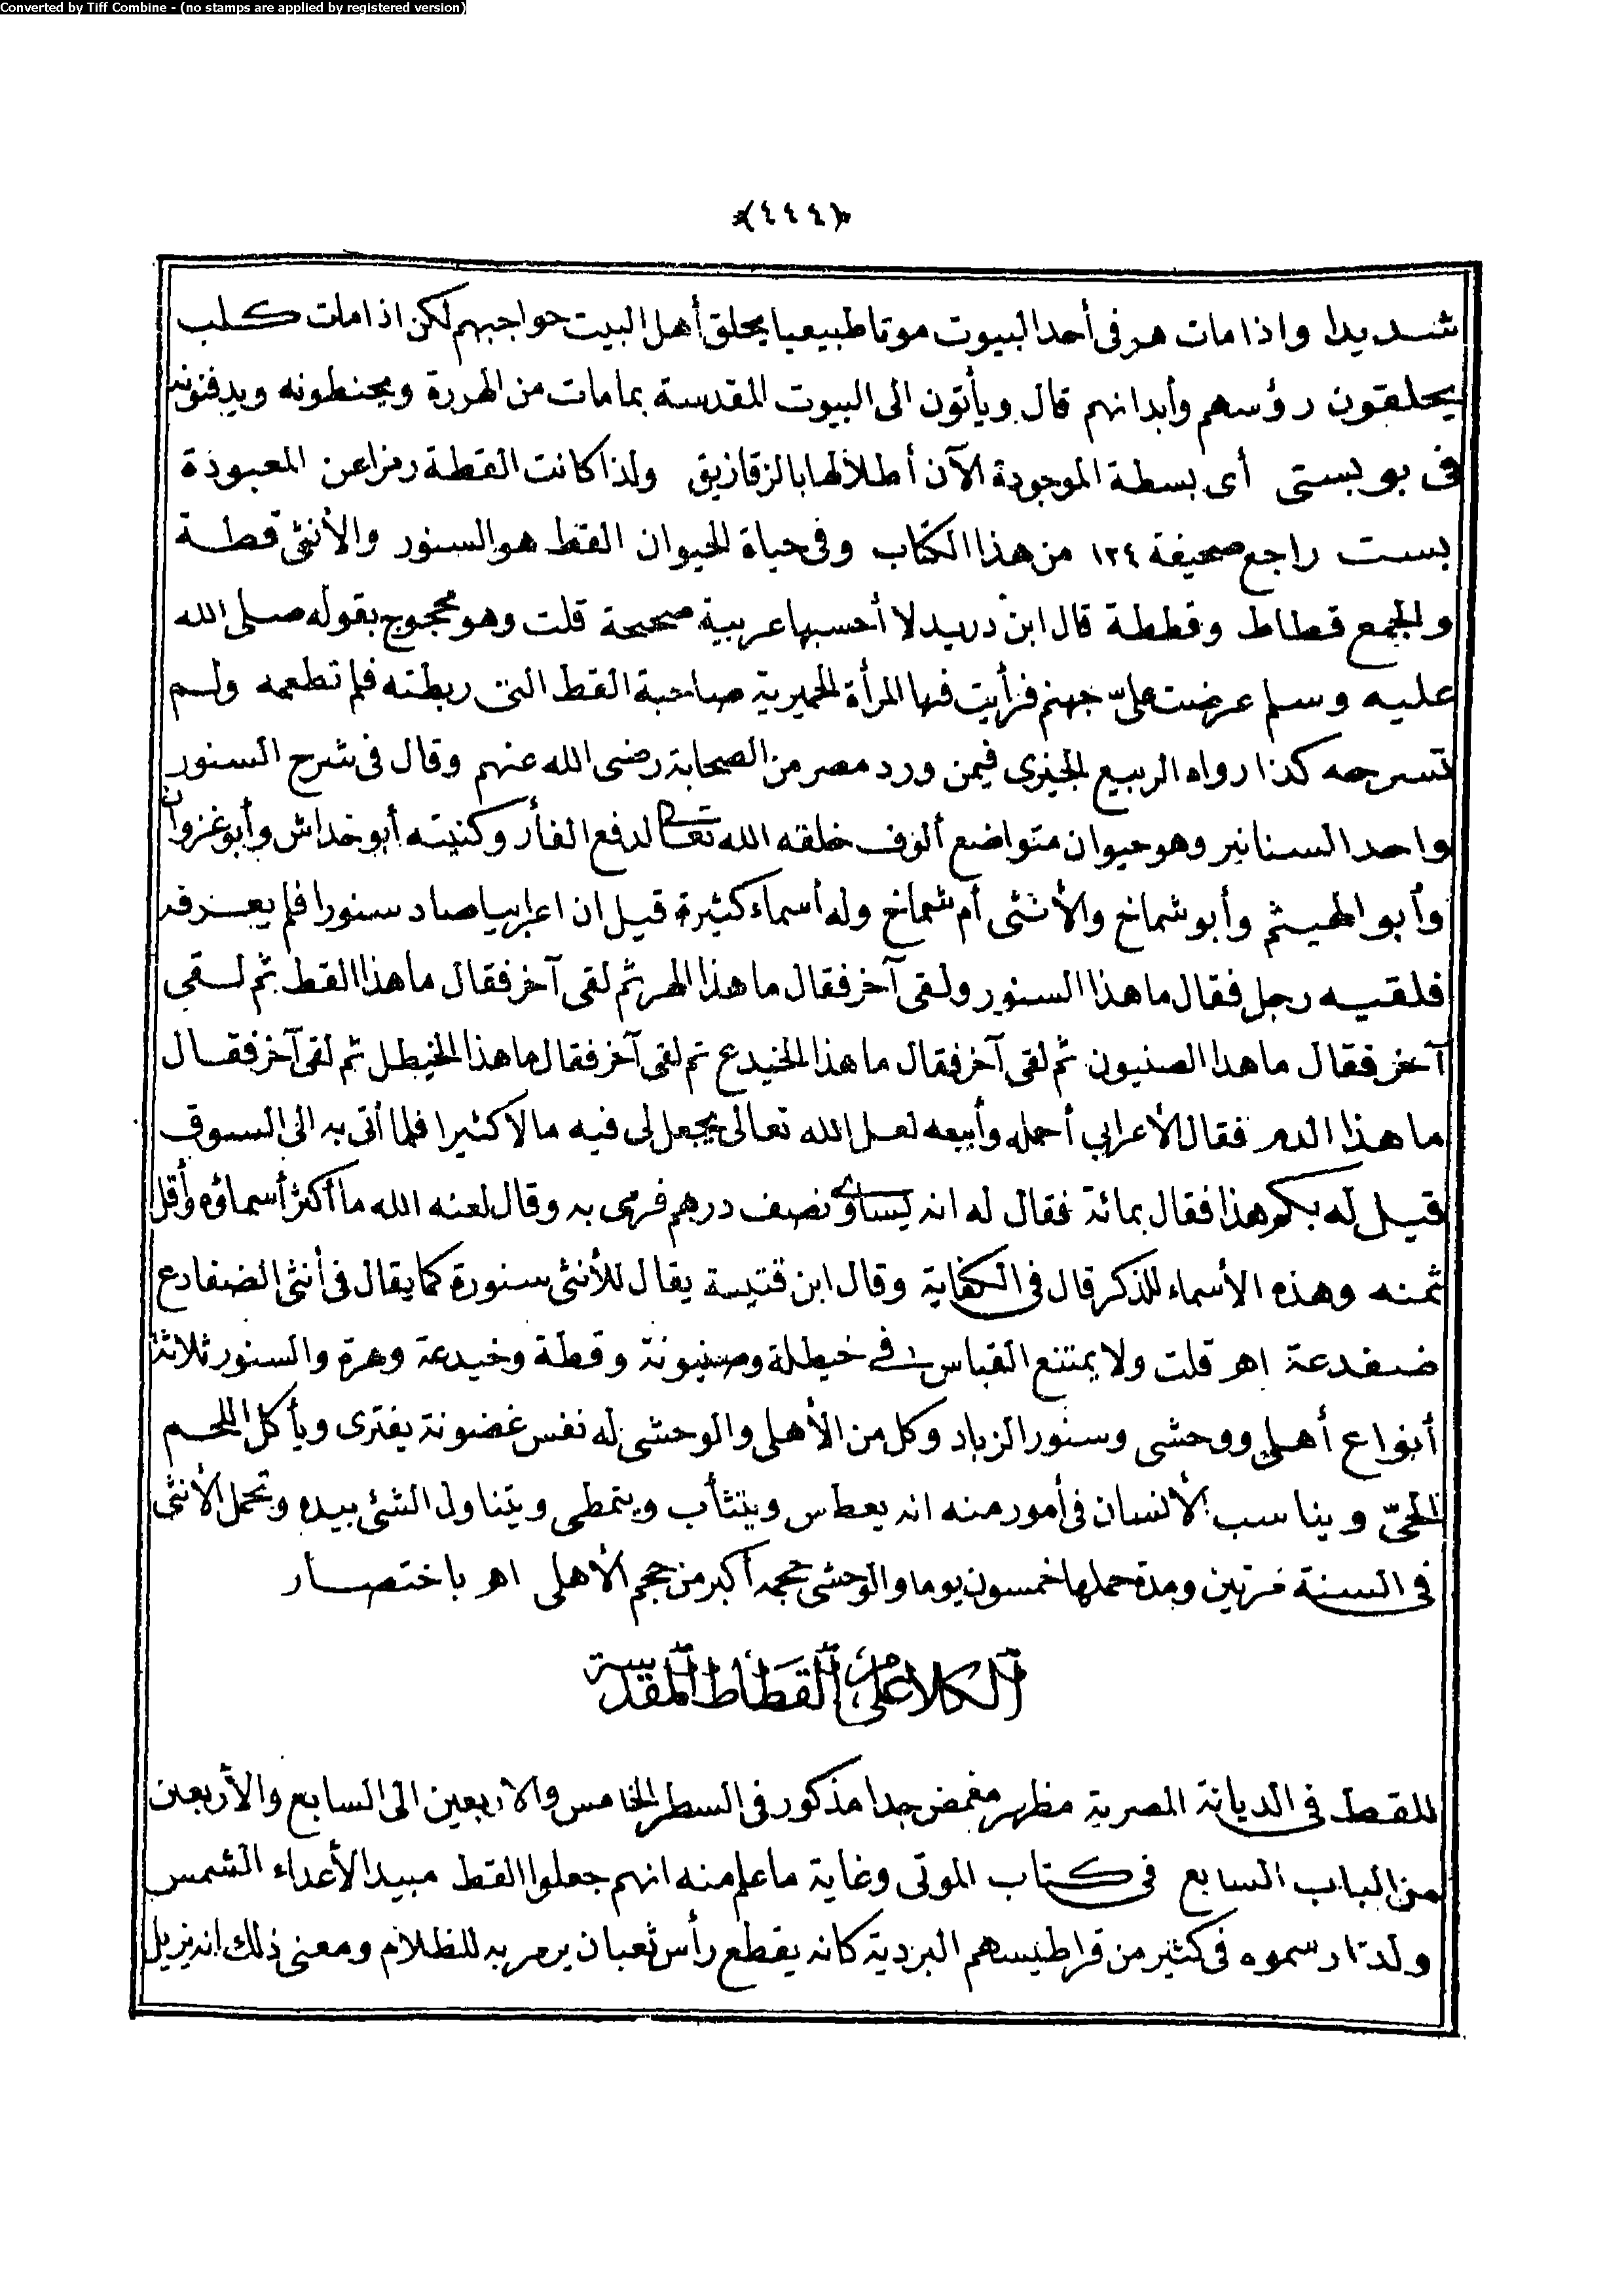 Converted by Tiff Combine - (no stamps are applied by registered version)
﴿٤٤٤﴾
شديدا واذا مات هر فى أحد البيوت موتا طبيعيا يحلق أهل البيت حواجبهم لكن اذا مات كلب
يحلقون رؤسهم وأبدانهم قال ويأتون الى البيوت المقدسة بما مات من الهررة ويحنطونه ويدفنونه
فى بوبستى أى بسطة الموجودة الآن أطلالها بالزقازيق ولذا كانت القطة رمزا عن المعبودة
بست راجع صحيفة ١٢٤ من هذا الكتاب وفى حياة الحيوان القط هو السنور والأنثى قطة
والجمع قطاط وقططة قال ابن دريد لا أحسبها عربية صحيحة قلت وهو محجوج بقوله صلى الله
عليه وسلم عرضت علىّ جهنم فرأيت فيها المرأة الحميرية صاحبة القط التى ربطته فلم تطعمه ولم
تسرحه كذا رواه الربيع الجيزى فيمن ورد مصر من الصحابة رضى الله عنهم وقال فى شرح السنور
واحد السنانير وهو حيوان متواضع ألوف خلقه الله تعالى لدفع الفأر وكنيته أبو خداش وأبو غزوان
وأبو الهيثم وأبو شماخ والأنثى أم شماخ وله أسماء كثيرة قيل ان اعرابيا صاد سنورا فلم يعرفه
فلقيه رجل فقال ما هذا السنور ولقى آخر فقال ما هذا الهر ثم لقى آخر فقال ما هذا القط ثم لقى
آخر فقال ما هدا الصنيون ثم لقى آخر فقال ما هذا الخيدع ثم لقى آخر فقال ما هذا الخيطل ثم لقى آخر فقال
ما هذا الدم فقال الأعرابي أحمله وأبيعه لعل الله تعالى يجعل لى فيه مالا كثيرا فلما أتى به الى السوق
قيل له بكم هذا فقال بمائة فقال له انه يساوى نصف درهم فرمى به وقال لعنه الله ما أكثر أسماؤه وأقل
ثمنه وهذه الأسماء للذكر قال فى الكفاية وقال ابن قتيبة يقال للأنثى سنورة كما يقال فى أنثى الضفادع
ضفدعة اهـ قلت ولا يمتنع القياس فى خيطلة وصنيونة وقطة وخيدعة وهرة والسنور ثلاثة
أنواع أهلى ووحشى وسنور الزباد وكل من الأهلى والوحشى له نفس غضونة يفترى ويأكل اللحم
الحىّ ويناسب الأنسان فى أمور منه انه يعطس ويتثأب ويتمطى ويتناول الشئ بيده وتحمل الأنثى
فى السنة مرتين ومدة حملها خمسون يوما والوحشى حجمه أكبر من حجم الأهلى اهـ باختصار
الكلام على القطاط المقدسة
للقط فى الديانة المصرية مظهر مغمض جدا مذكور فى السطر الخامس والاربعين الى السابع والأربعين
من الباب السابع فى كتاب الموتى وغاية ما علم منه انهم جعلوا القط مبيدا لأعداء الشمس
ولذا رسموه فى كثير من قراطيسهم البردية كانه يقطع رأس ثعبان يرمز به للظلام ومعنى ذلك انه يزيل